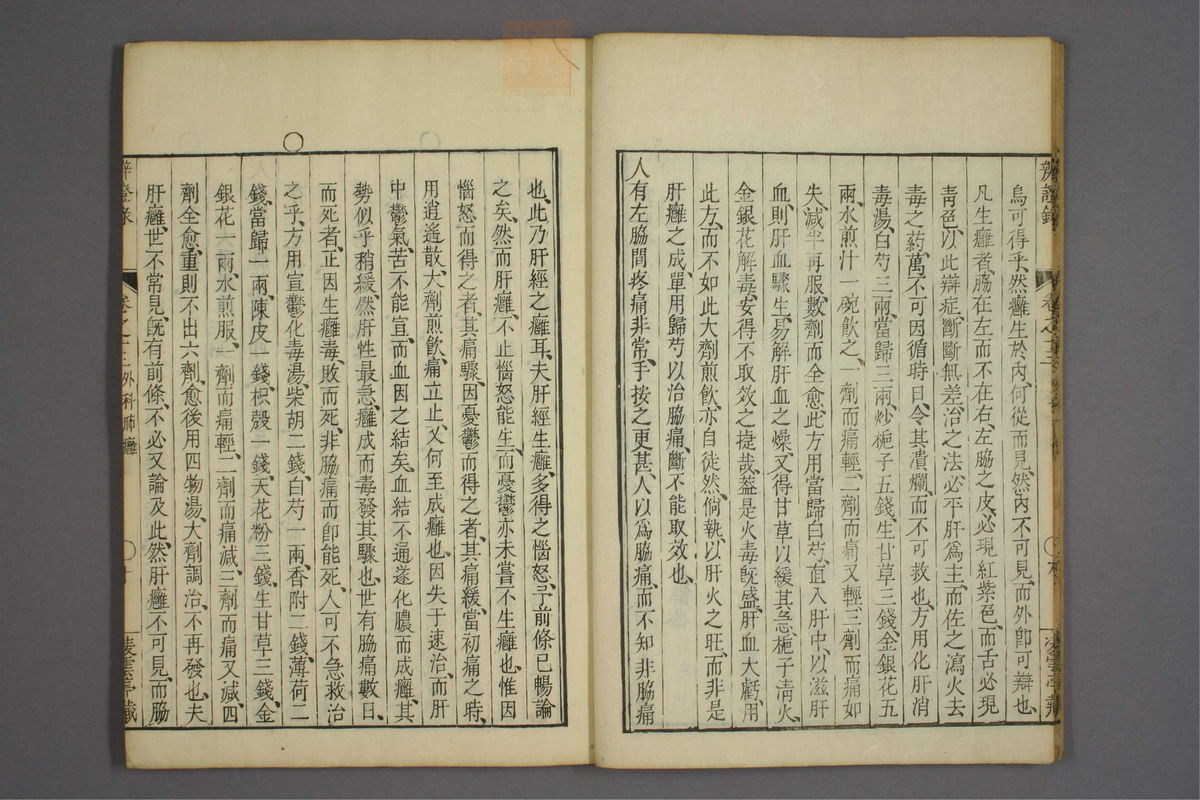 烏可得乎、然癰生於內、何從而見、然內不可見、而外卽可辯也、
凡生癰者、脇在左而不在右、左脇之皮、必現紅紫色、而舌必現
靑色、以此辯症、斷斷無差、治之法、必平肝爲主、而佐之瀉火去
毒之葯、萬不可因循時日、令其潰爛、而不可救也、方用化肝消
毒湯、白芍三兩、當歸三兩、炒梔子五錢、生甘草三錢、金銀花五
兩、水煎汁一碗、飮之、一劑而痛輕、二劑而痛又輕、三劑而痛如
失、減半再服、數劑而全愈、此方用當歸白芍、直入肝中、以滋肝
血、則肝血驟生、易解肝血之燥、又得甘草以緩其急、梔子淸火、
金銀花解毒、安得不取效之捷哉、葢是火毒旣盛、肝血大虧、用
此方、而不如此大劑煎飮、亦自徒然、倘執以肝火之旺、而非是
肝癰之成、單用歸芍以治脇痛、斷不能取效也、
人有左脇間疼痛非常、手按之更甚、人以爲脇痛、而不知非脇痛
也、此乃肝經之癰耳、夫肝經生癰、多得之惱怒、予前條已暢論
之矣、然而肝癰、不止惱怒能生、而憂鬱亦未嘗不生癰也、惟因
惱怒而得之者、其痛驟、因憂鬱而得之者、其痛緩、當初痛之時、
用逍遙散、大劑煎飮、痛立止、又何至成癰也、因失于速治、而肝
中鬱氣、苦不能宣、而血因之結矣、血結不通、遂化膿而成癰、其
勢似乎稍緩、然肝性最急、癰成而毒發其驟也、世有脇痛數日、
而死者、正因生癰毒、敗而死、非脇痛而卽能死、人可不急救治
之乎、方用宣鬱化毒湯、柴胡二錢、白芍一兩、香附二錢、薄荷二
錢、當歸一兩、陳皮一錢、枳殼一錢、天花粉三錢、生甘草三錢、金
銀花一兩、水煎服、一劑而痛輕、二劑而痛減、三劑而痛又減、四
劑全愈、重則不出六劑、愈後用四物湯、大劑調治、不再發也、夫
肝癰、世不常見、旣有前條、不必又論及此、然肝癰不可見、而脇
卷之十三 外科肺癰
凌雲亭藏